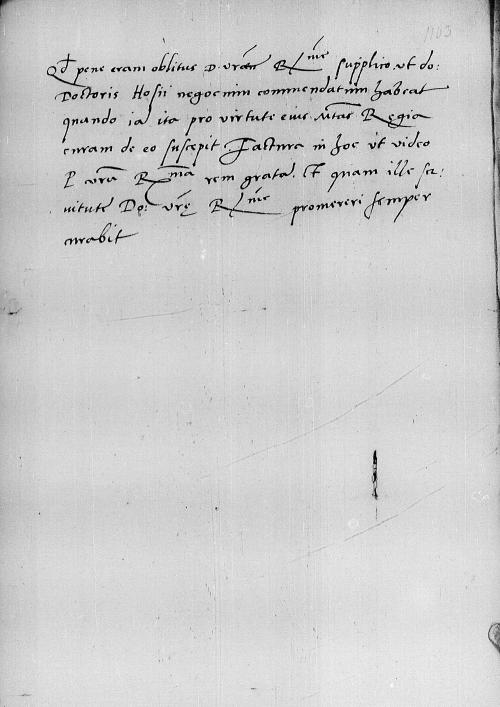 1103
Qd pene eram oblitus D. vram Rme supplico ut do:
Doctoris Hosii negocium commendatum habeat
quando iã ita pro virtute eius Mtas Regia
curam de eo suscepit Factura in hoc ut video
P vra Rma rem gratã. Et quam ille ser
uitute Do: vrę Rme promereri semper
curabit